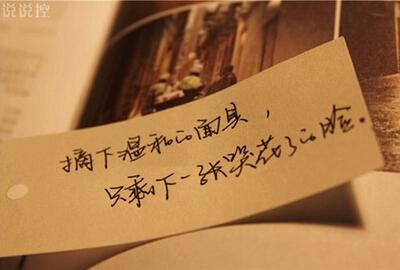 说说控
摘下温和的面具，
只剩下一张哭花了的脸。